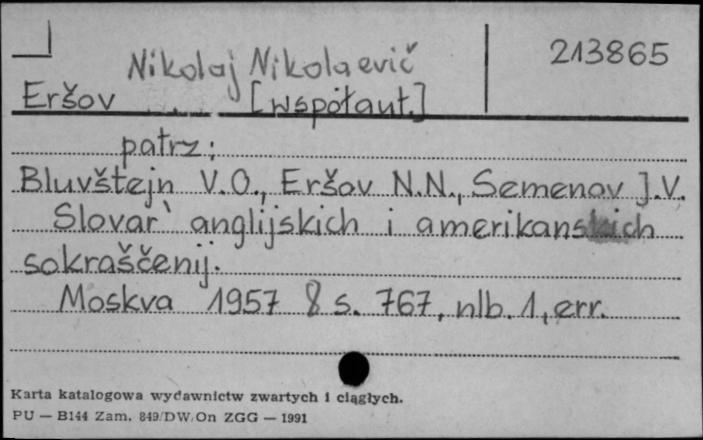 Nikolaj Nikolaevič 213865
Eršov [współaut.]
patrz:
Bluvštejn V.O., Eršov N.N., Semenov J.V.
Slovar` anglijskich i amerikanskich
sokraščenij.
Moskva 1957 8 s. 767, nlb. 1, err.
Karta katalogowa wydawnictw zwartych i ciągłych.
PU — B144 Zam. 849/DW/On ZGG — 1991